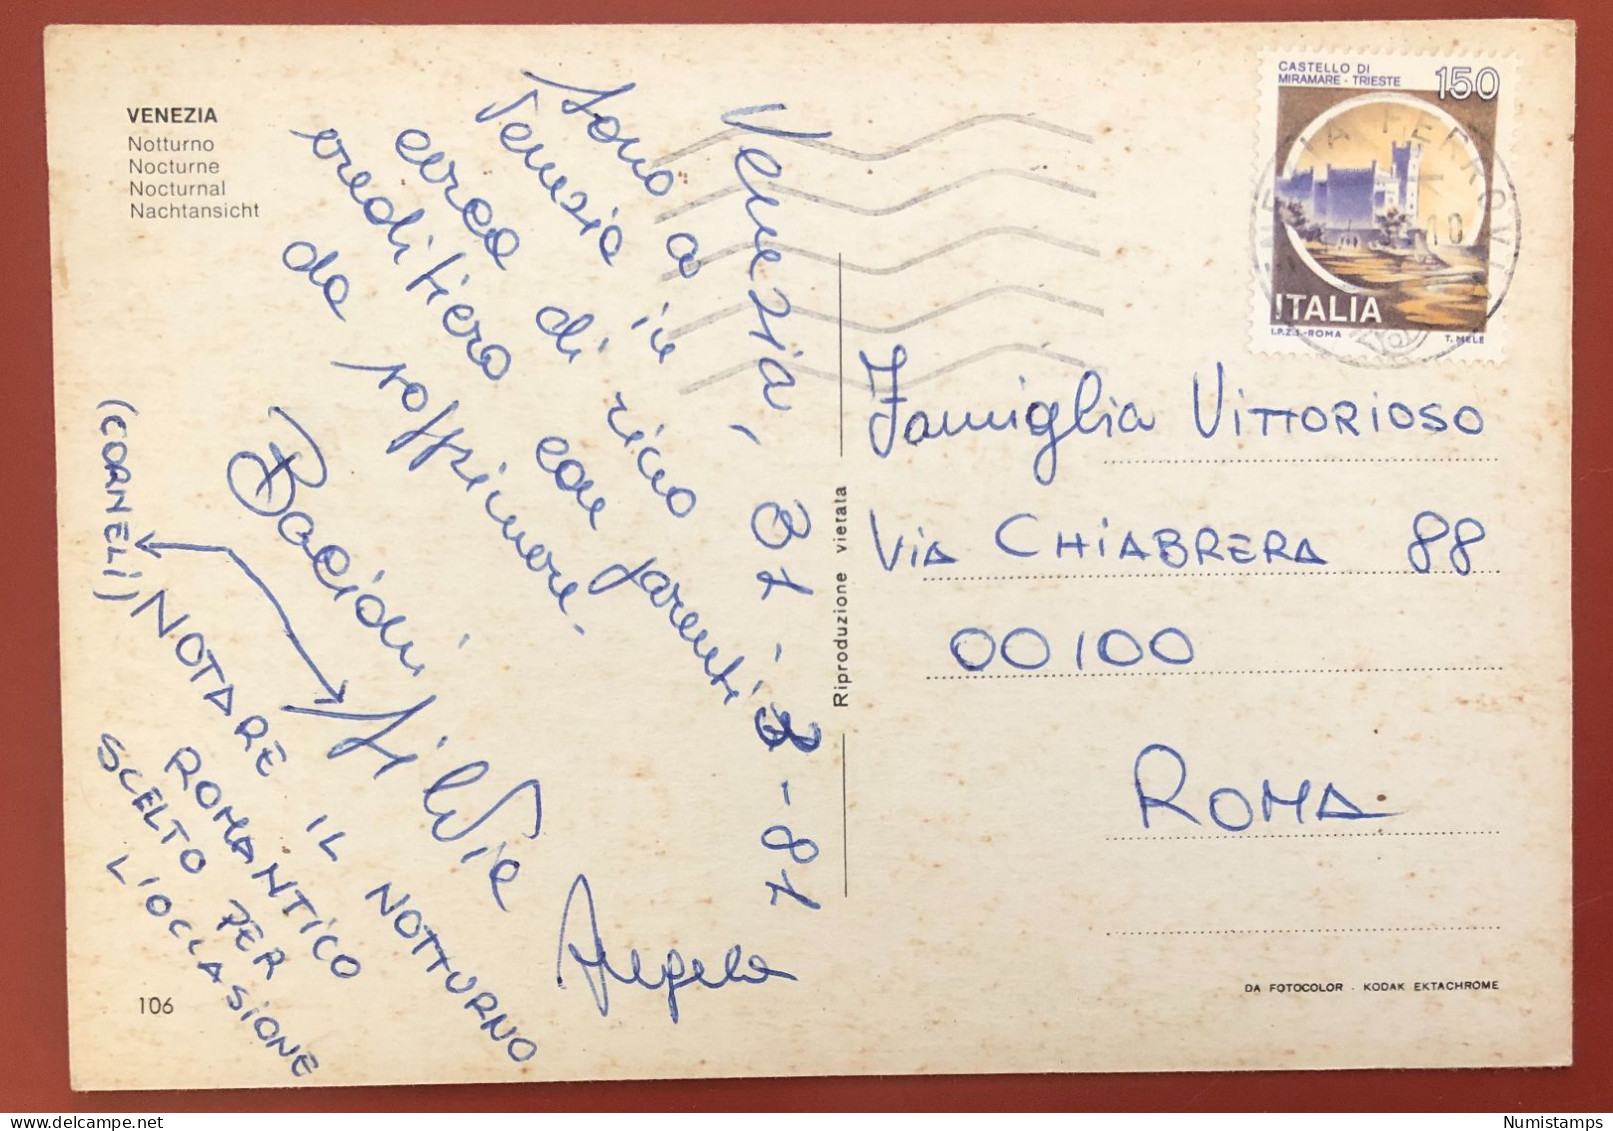 VENEZIA
Notturno
Nocturne
Nocturnal
Nachtansicht
Venezia, 31-8-81
Sono a
Venezia in
cerca di ricco
ereditiero con parenti
da sopprimere.
Bacioni
Silvia
Angela
(CORNELI)
NOTARE IL NOTTURNO
ROMANTICO
SCELTO PER
L'OCCASIONE
106
Riproduzione vietata
CASTELLO DI
MIRAMARE - TRIESTE
150
ITALIA
I.P.Z.S.-ROMA
T. MELE
VENEZIA FERROVIA
10
Famiglia VITTORIOSO
VIA CHIABRERA 88
00100
ROMA
DA FOTOCOLOR - KODAK EKTACHROME
Numistamps